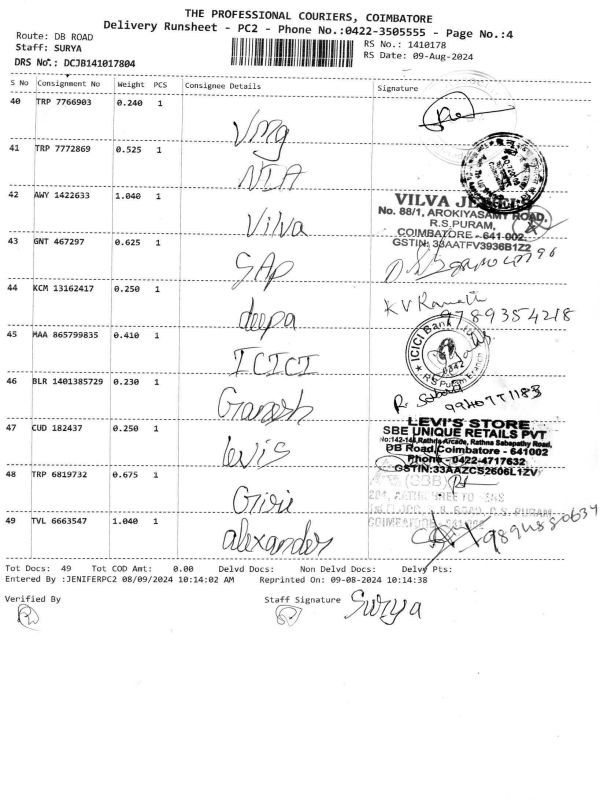 THE PROFESSIONAL COURIERS, COIMBATORE
Delivery Runsheet - PC2 - Phone No.:0422-3505555 - Page No.:4
Route: DB ROAD
Staff: SURYA
DRS No.: DCJB141017804
RS No.: 1410178
RS Date: 09-Aug-2024
S No Consignment No Weight PCS Consignee Details Signature
40 TRP 7766903 0.240 1
Vmg
41 TRP 7772869 0.525 1
NIA
42 AWY 1422633 1.040 1
Vilva
VILVA
No. 88/1, AROKIYASAMY ROAD,
R.S.PURAM,
COIMBATORE - 641 002.
GSTIN: 33AATFV3936B1Z2
43 GNT 467297 0.625 1
SAP
44 KCM 13162417 0.250 1
deepa
KV
9789354218
45 MAA 865799835 0.410 1
ICICI
ICICI Bank
0342
R S Puram Branch
46 BLR 1401385729 0.230 1
Ganesh
R.
47 CUD 182437 0.250 1
levis
LEVI'S STORE
SBE UNIQUE RETAILS PVT
No:142-144,Rathna Arcade, Rathna Sabapathy Road,
DB Road,Coimbatore - 641002
Phone - 0422-4717632
GSTIN:33AAZCS2606L1ZV
48 TRP 6819732 0.675 1
Giri
49 TVL 6663547 1.040 1
alexander
Tot Docs: 49 Tot COD Amt: 0.00 Delvd Docs: Non Delvd Docs: Delvy Pts:
Entered By :JENIFERPC2 08/09/2024 10:14:02 AM Reprinted On: 09-08-2024 10:14:38
Verified By
Staff Signature Surya